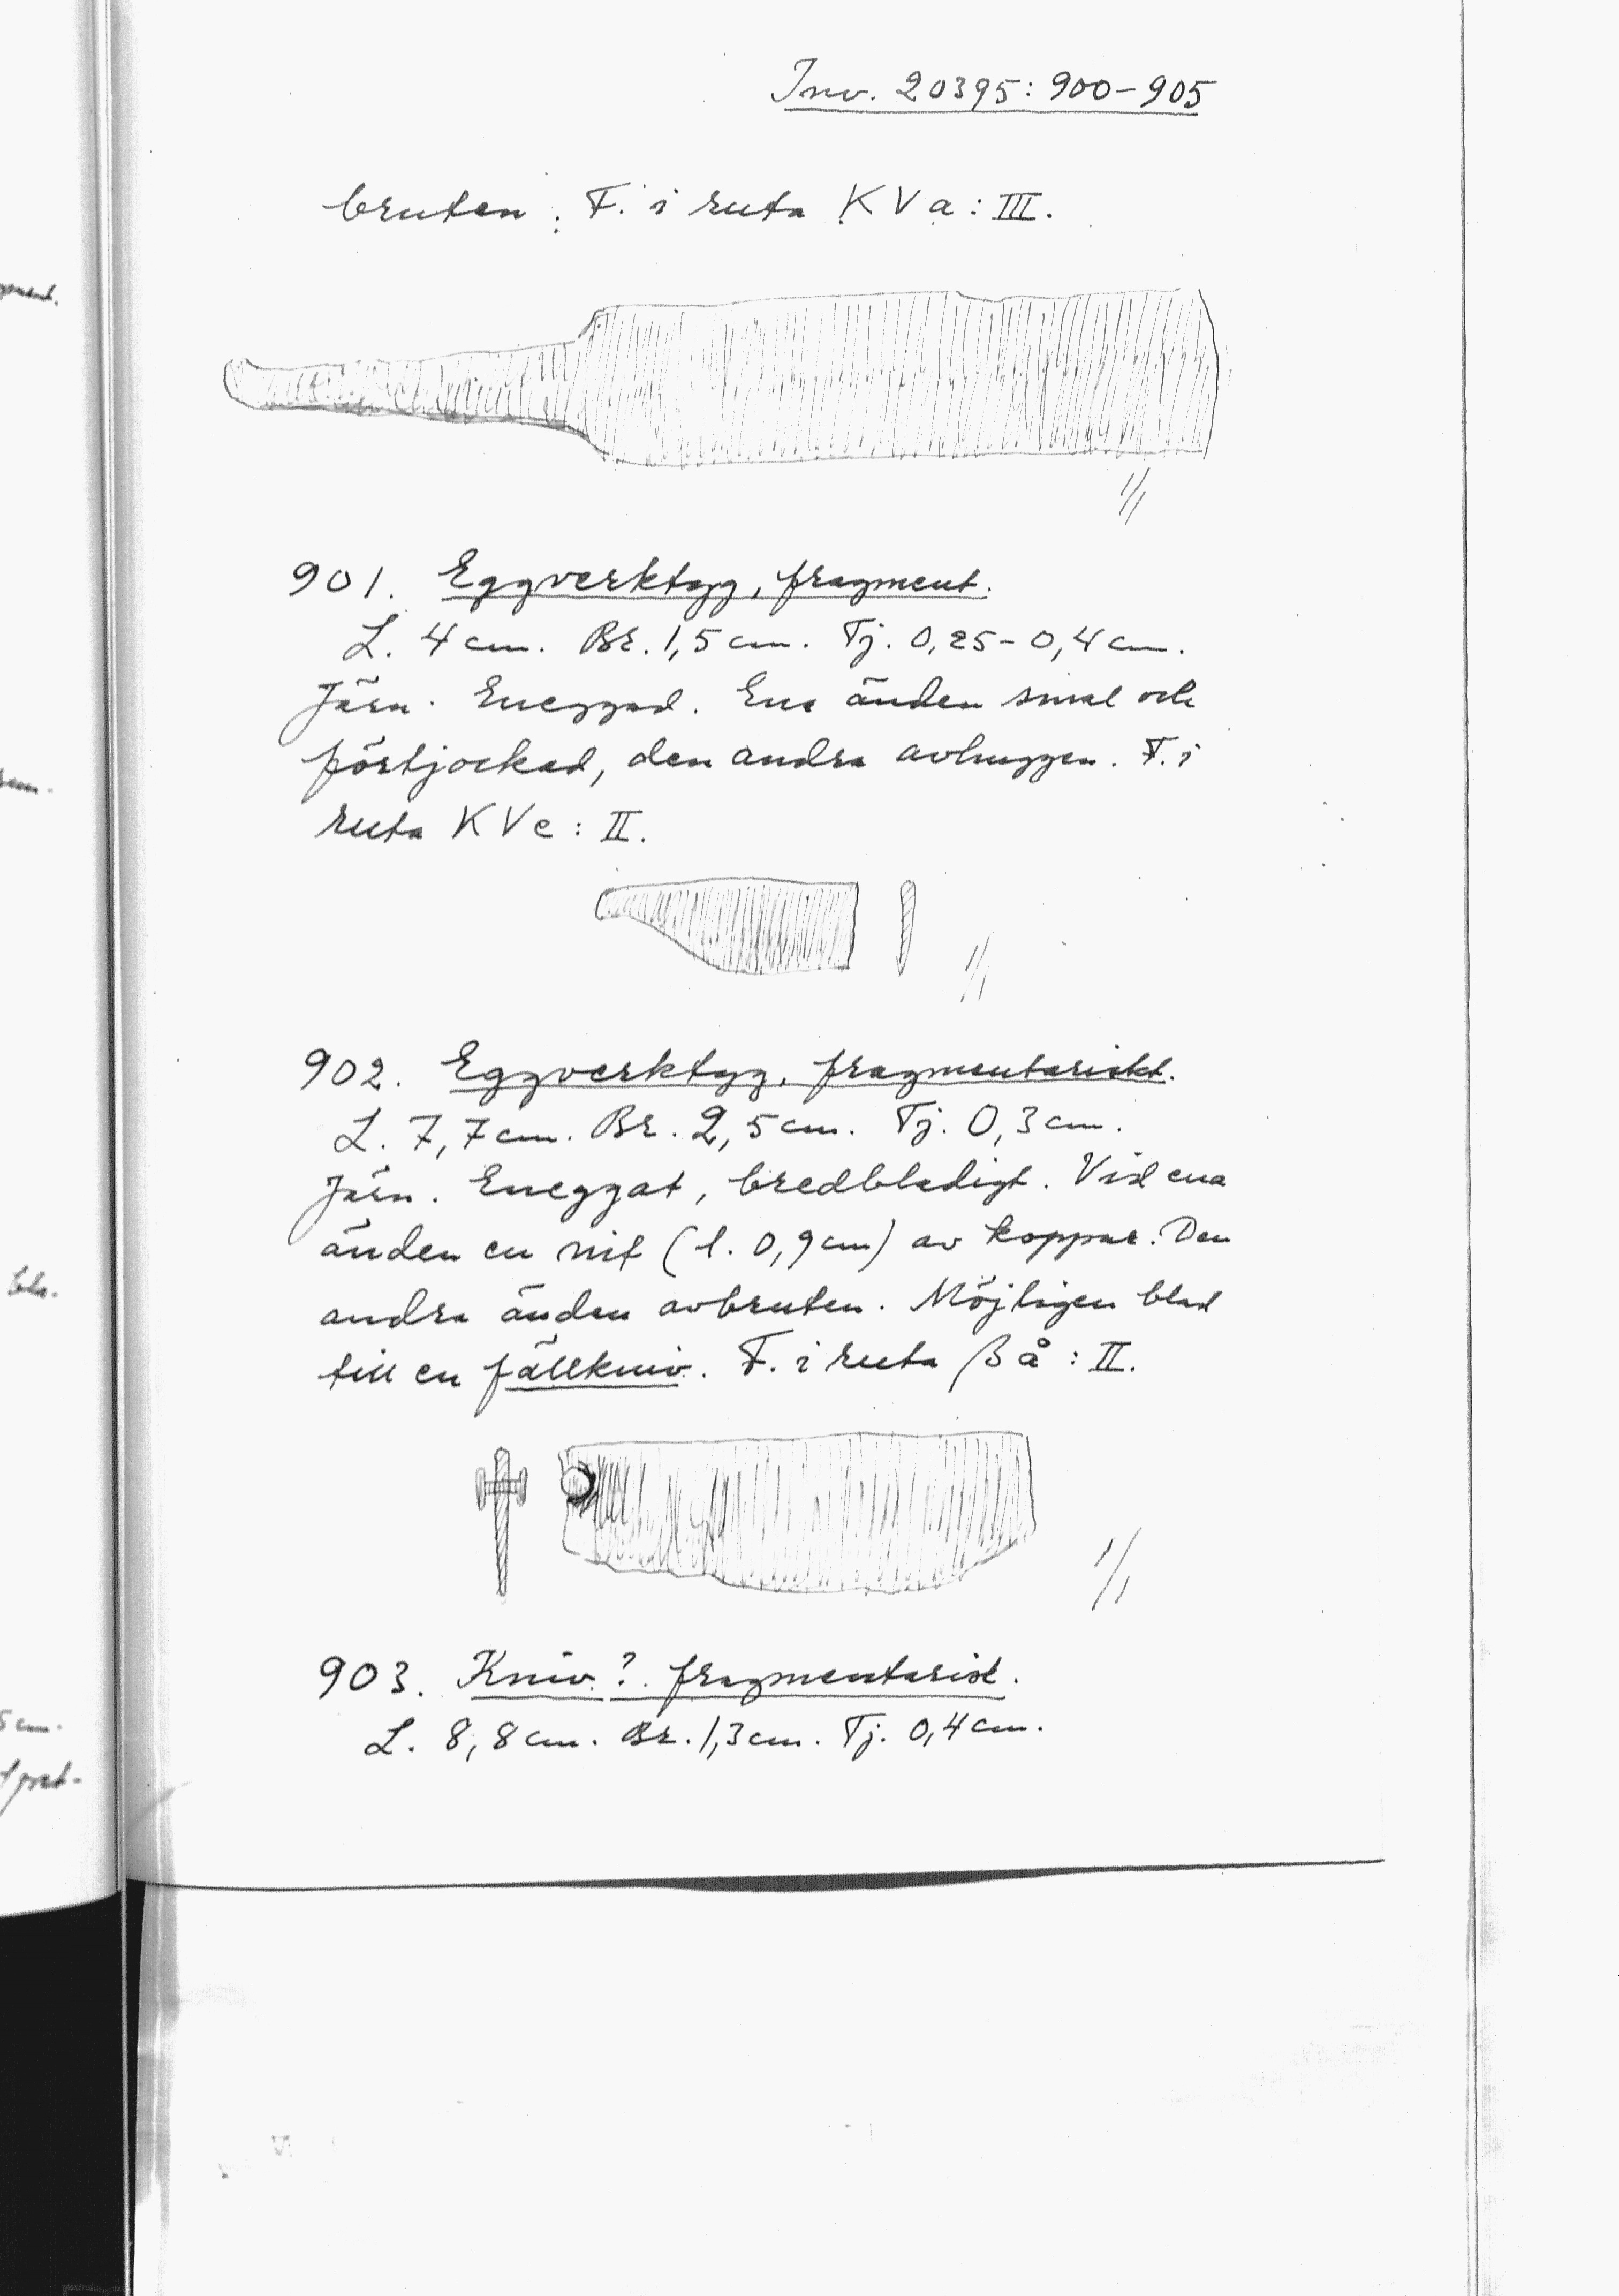 Inv. 20395: 900-905
bruten. F. i ruta KVa: III.
1/1
901. Eggverktyg, fragment.
L. 4 cm. Br. 1,5 cm. Tj. 0,25-0,4 cm.
Järn. Eneggad. Ena änden smal och
förtjockad, den andra avhuggen. F. i
ruta KVe: II.
1/1
902. Eggverktyg, fragmentariskt.
L. 7,7 cm. Br. 2,5 cm. Tj. 0,3 cm.
Järn. Eneggat, bredbladigt. Vid ena
änden en nit (l. 0,9 cm) av koppar. Den
andra änden avbruten. Möjligen blad
till en fällkniv. F. i ruta βå: II.
1/1
903. Kniv?. fragmentarisk.
L. 8,8 cm. Br. 1,3 cm. Tj. 0,4 cm.